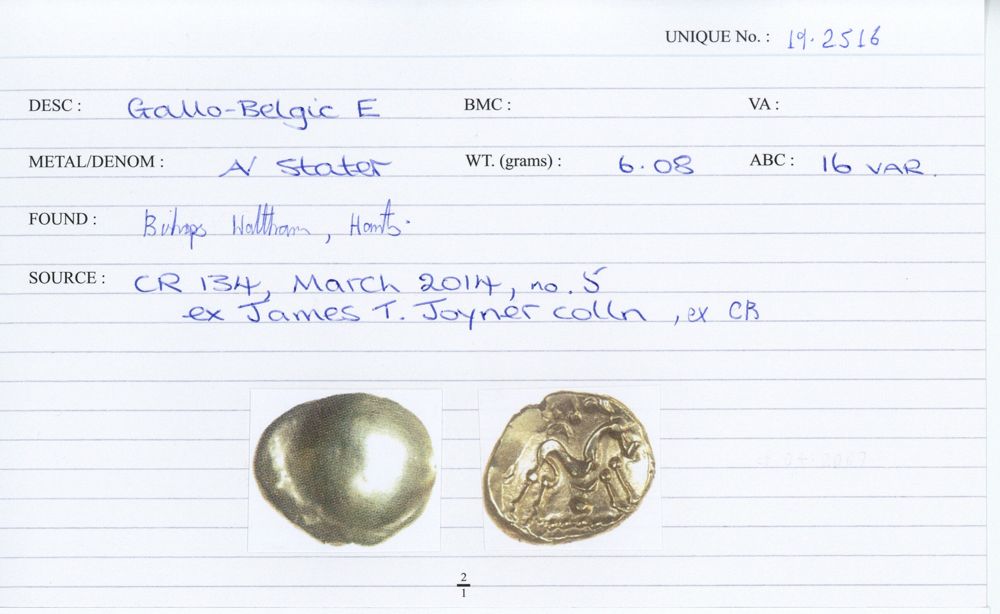 UNIQUE No. : 19.2516
DESC : Gallo-Belgic E BMC : VA :
METAL/DENOM : AV Stater WT. (grams) : 6.08 ABC : 16 VAR.
FOUND : Bishops Waltham, Hants.
SOURCE : CR 134, March 2014, no. 5
ex James T. Joyner colln , ex CB
2
1